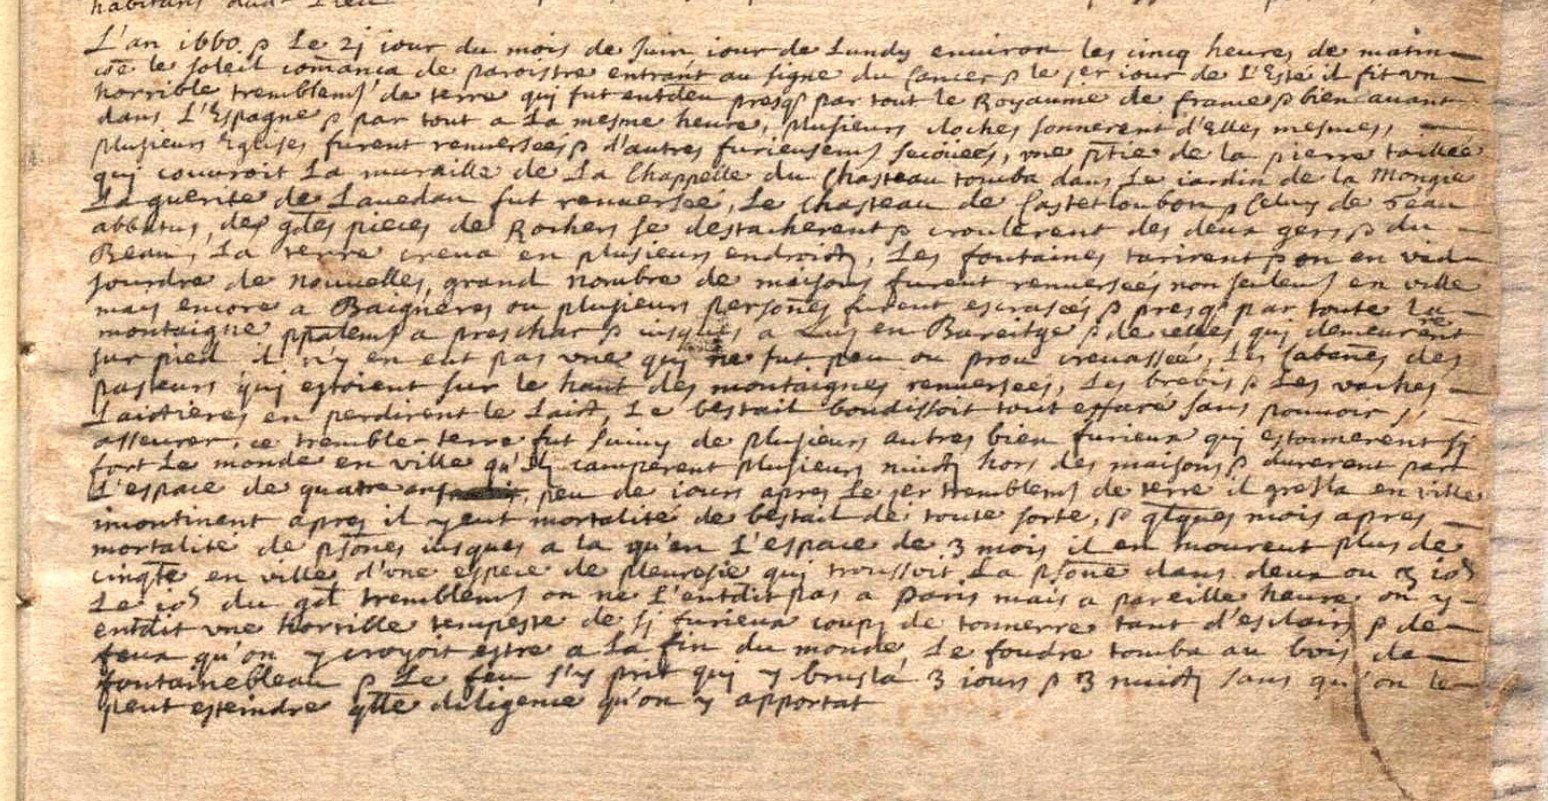 habitans dud. Lieu
L'an 1660 & Le 21 iour du mois de Juin iour de Lundy enuiron les cinq heures de matin
coe le soleil comança de paroistre entrant au signe du Cancer & le 1er iour de L'Esté il fit vn
horrible tremblemt de terre qui fut entdeu presq par tout le Royaume de france & bien auant
dans L'Espagne & par tout a La mesme heure, plusieurs cloches sonnerent d'elles mesmes,
plusieurs Eglises furent renuersées & d'autres furieusemt secoüées, vne ptie de la pierre taillée
qui couuroit La muraille de La Chappelle du Chasteau tomba dans Le iardin de la Mongie
La guerite de Lauedan fut renuersée, Le Chasteau de Castetloubon & Celuy de Beau
abbatus, des gdes pieces de Rochers se destacherent & croulerent des deux gers & du
Beau, La terre creua en plusieurs endroicts, Les fontaines tarirent & on en vid
sourdre de nouuelles, grand nombre de maisons furent renuersées non seulemt en ville
mais encore a Baigneres ou plusieurs persones furent escrasées & presq par toute La
montaigne ppalemt a & iusques a Luz en Bareitge & de celles qui demeurerent
sur pied il n'y en eut pas vne qui ne fut peu ou prou creuassée, Les Cabenes des
pasteurs qui estoient sur le haut des montaignes renuersees, Les brebis & Les vaches
Laictieres en perdirent le Laict, Le bestail boudissoit tout effaré sans pouuoir s'
asseurer, ce tremble-terre fut suiuy de plusieurs autres bien furieux qui estonnerent sy
fort Le monde en ville qu'ils camperent plusieurs nuicts hors des maisons & durerent par
L'espace de quatre ans, peu de iours apres Le 1er tremblemt de terre il gresla en ville
incontinent apres il y eut mortalité de bestail de toute sorte, & qlques mois apres
mortalité de psones iusques a la qu'en L'espace de 3 mois il en mourent plus de
cinqte en ville d'vne espece de pleuresie qui troussoit La psone dans deux ou 3 iors
Le ior du gd tremblemt on ne L'entdit pas a Paris mais a pareille heure on y
entdit vne horrible tempeste de sy furieux coups de tonnerre tant d'esclairs & de
feux qu'on y croyoit estre a La fin du monde, Le foudre tomba au bois de
fontainebleau & Le feu s'y prit qui y brusla 3 iours & 3 nuicts sans qu'on le
peut esteindre qlle diligence qu'on y apportat